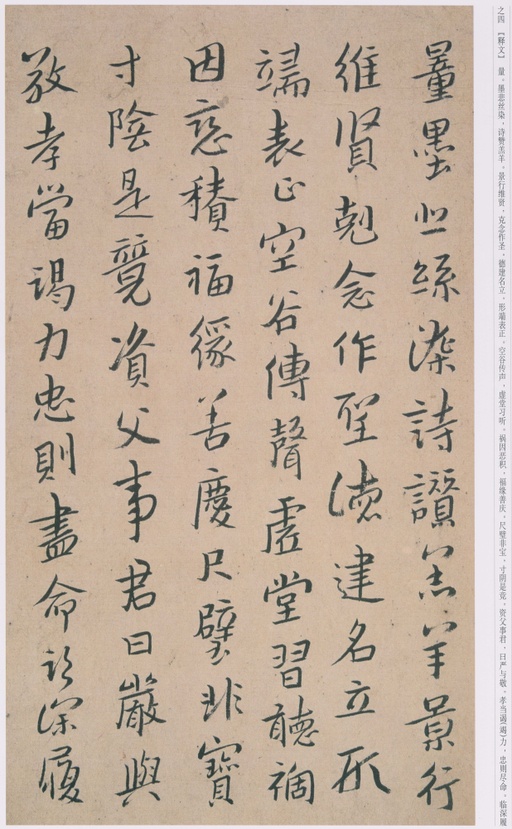 之四 【释文】 量。墨悲丝染，诗赞羔羊。景行维贤，克念作圣。德建名立，形端表正。空谷传声，虚堂习听。祸因恶积，福缘善庆。尺璧非宝，寸阴是竞。资父事君，曰严与敬。孝当谒(竭)力，忠则尽命。临深履
量墨悲絲染詩讚羔羊景行
維賢剋念作聖德建名立形
端表正空谷傳聲虛堂習聽禍
因惡積福緣善慶尺璧非寶
寸陰是競資父事君曰嚴與
敬孝當謁力忠則盡命臨深履